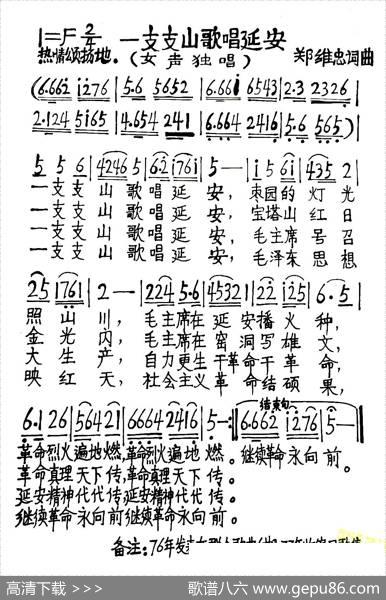 1=F 2/4
一支支山歌唱延安
热情颂扬地。
(女声独唱)
郑维忠词曲
(6.662 i276 | 5.652 5165 | 6.661 6543 | 2.3 2326 |
2.124 5165 | 4.654 241 | 6.664 2416 | 5.6 565) |
5 5 6 | 4246 5 | 6 2 1761 | 5 — | i 5 6i | 435 2 |
一支支山歌唱延安,枣园的灯光
一支支山歌唱延安,宝塔山红日
一支支山歌唱延安,毛主席号召
一支支山歌唱延安,毛泽东思想
25 1761 | 2 — | 224 5.6 | 4532 | 22 i25 | 6.5 |
照山川,毛主席在延安播火种,
金光内,毛主席在窑洞写雄文,
大生产,自力更生干革命干革命,
映红天,社会主义革命结硕果,
结束句
6.1 26 | 5642 1 | 6664 2416 | 5 — :| 6.662 i276 | 5 — ||
革命烈火遍地燃。革命烈火遍地燃。继续革命永向前。
革命真理天下传,革命真理天下传。
延安精神代代传,延安精神代代传。
继续革命永向前继续革命永向前。
备注:76年发
高清下载 >>>
歌谱八六 www.gepu86.com